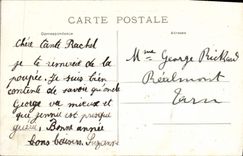 CARTE POSTALE
Correspondance
Adresse
Chère tante Rachel
je te remercie de la
poupée. Je suis bien
contente de savoir qu'oncle
George va mieux et
que Jennie est presque
guérie. Bonne année
bons baisers. Suzanne
Mme George Rickard
Réalmont
Tarn